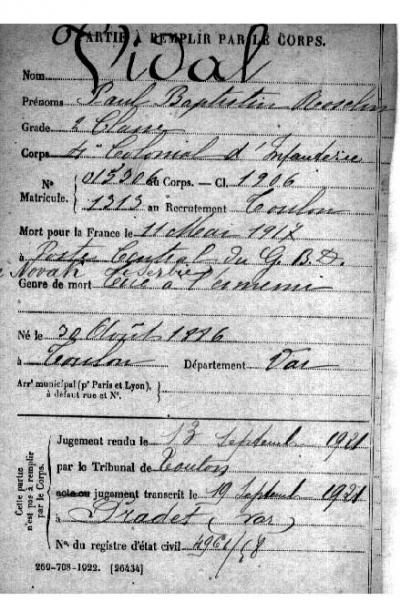 PARTIE À REMPLIR PAR LE CORPS.
Nom Vidal
Prénoms Paul Baptistin
Grade 2e Classe
Corps 4e Colonial d'Infanterie
N° 015306 au Corps. — Cl. 1906
Matricule. 1313 au Recrutement Toulon
Mort pour la France le 11 Mai 1917
à Poste Central du G. B. D.
Novak Serbie
Genre de mort Tué à l'ennemi
Né le 30 Août 1886
à Toulon Département Var
Arrt municipal (pr Paris et Lyon),
à défaut rue et N°.
Cette partie
n'est pas à remplir
par le Corps.
Jugement rendu le 13 Septemb 1921
par le Tribunal de Toulon
acte ou jugement transcrit le 19 Septemb 1921
à Pradet (Var)
N° du registre d'état civil
269-708-1922. [26434]